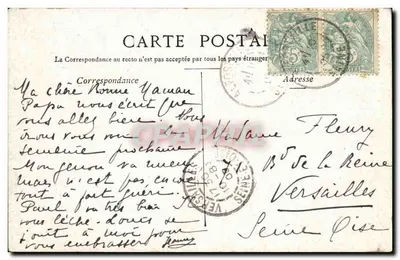 CARTE POSTALE
La Correspondance au recto n'est pas acceptée par tous les pays étrangers
Correspondance
Adresse
Ma chère Bonne Maman
Papa nous écrit que
vous allez bien. Nous
irons vous voir la
semaine prochaine
Mon genou va mieux
mais n'est pas encore
tout à fait guéri.
Paul va très bien il
vous lèche. Louis se
joint à moi pour
vous embrasser
Madame Fleury
Bd de la Reine
Versailles
Seine Oise
VERSAILLES
SEINE-ET-OISE